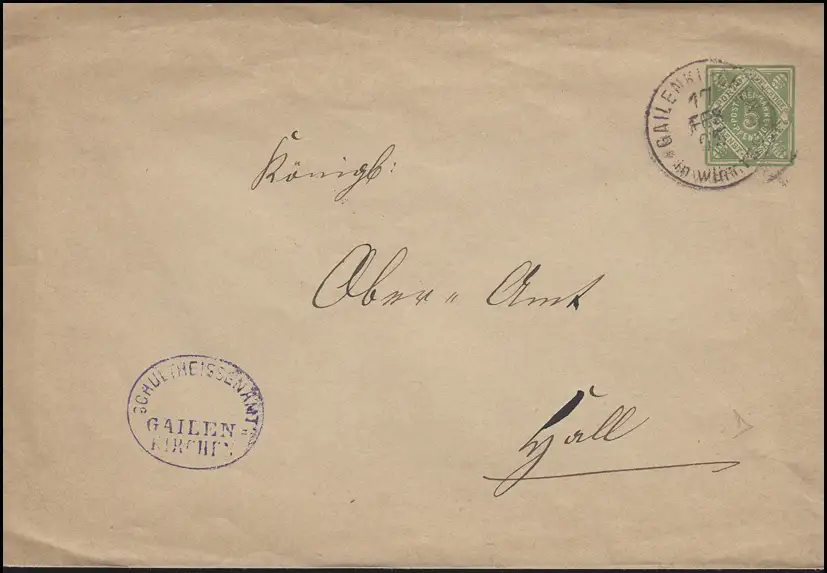 GAILENKI
17
FEB
in WÜRTT
5
Königl:
Ober- Amt
Hall
SCHULTHEISSENAMT
GAILEN=
KIRCHEN